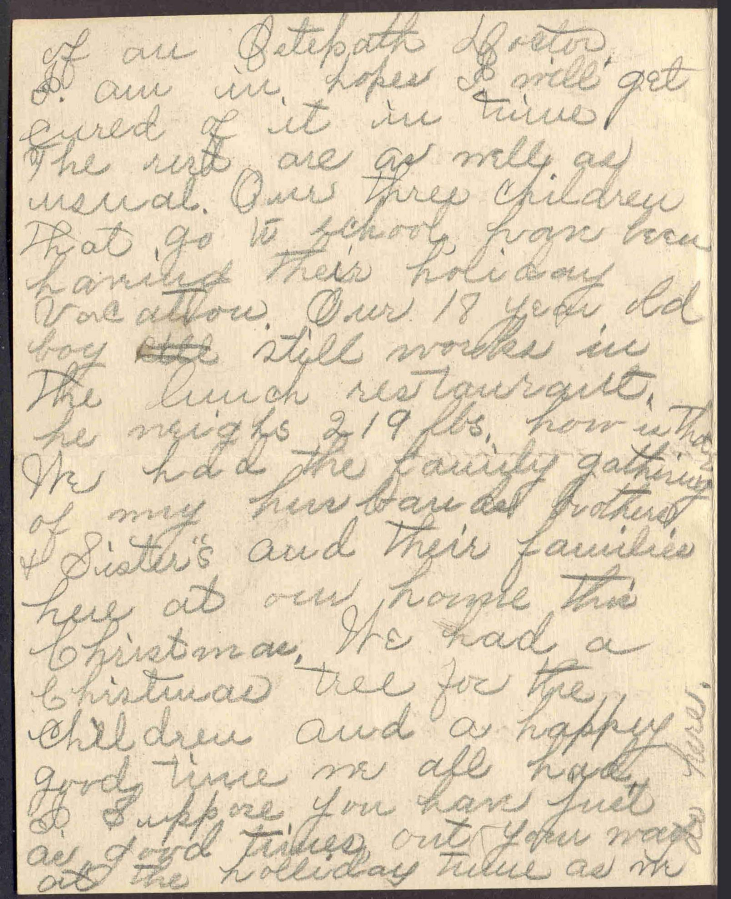 of an Ostepath Doctor.
I am in hopes I will get
cured of it in time
The rest are as well as
usual. Our three children
that go to school have been
having their holiday
Vacation. Our 18 year old
boy still works in
the lunch restaurant.
he weighs 219 lbs. how is that
We had the family gathering
of my husbands brothers
& Sister's and their families
here at our home this
Christmas. We had a
Christmas tree for the
children and a happy
good time we all had.
I suppose you have just
as good times out your way
at the holliday time as we
do here.